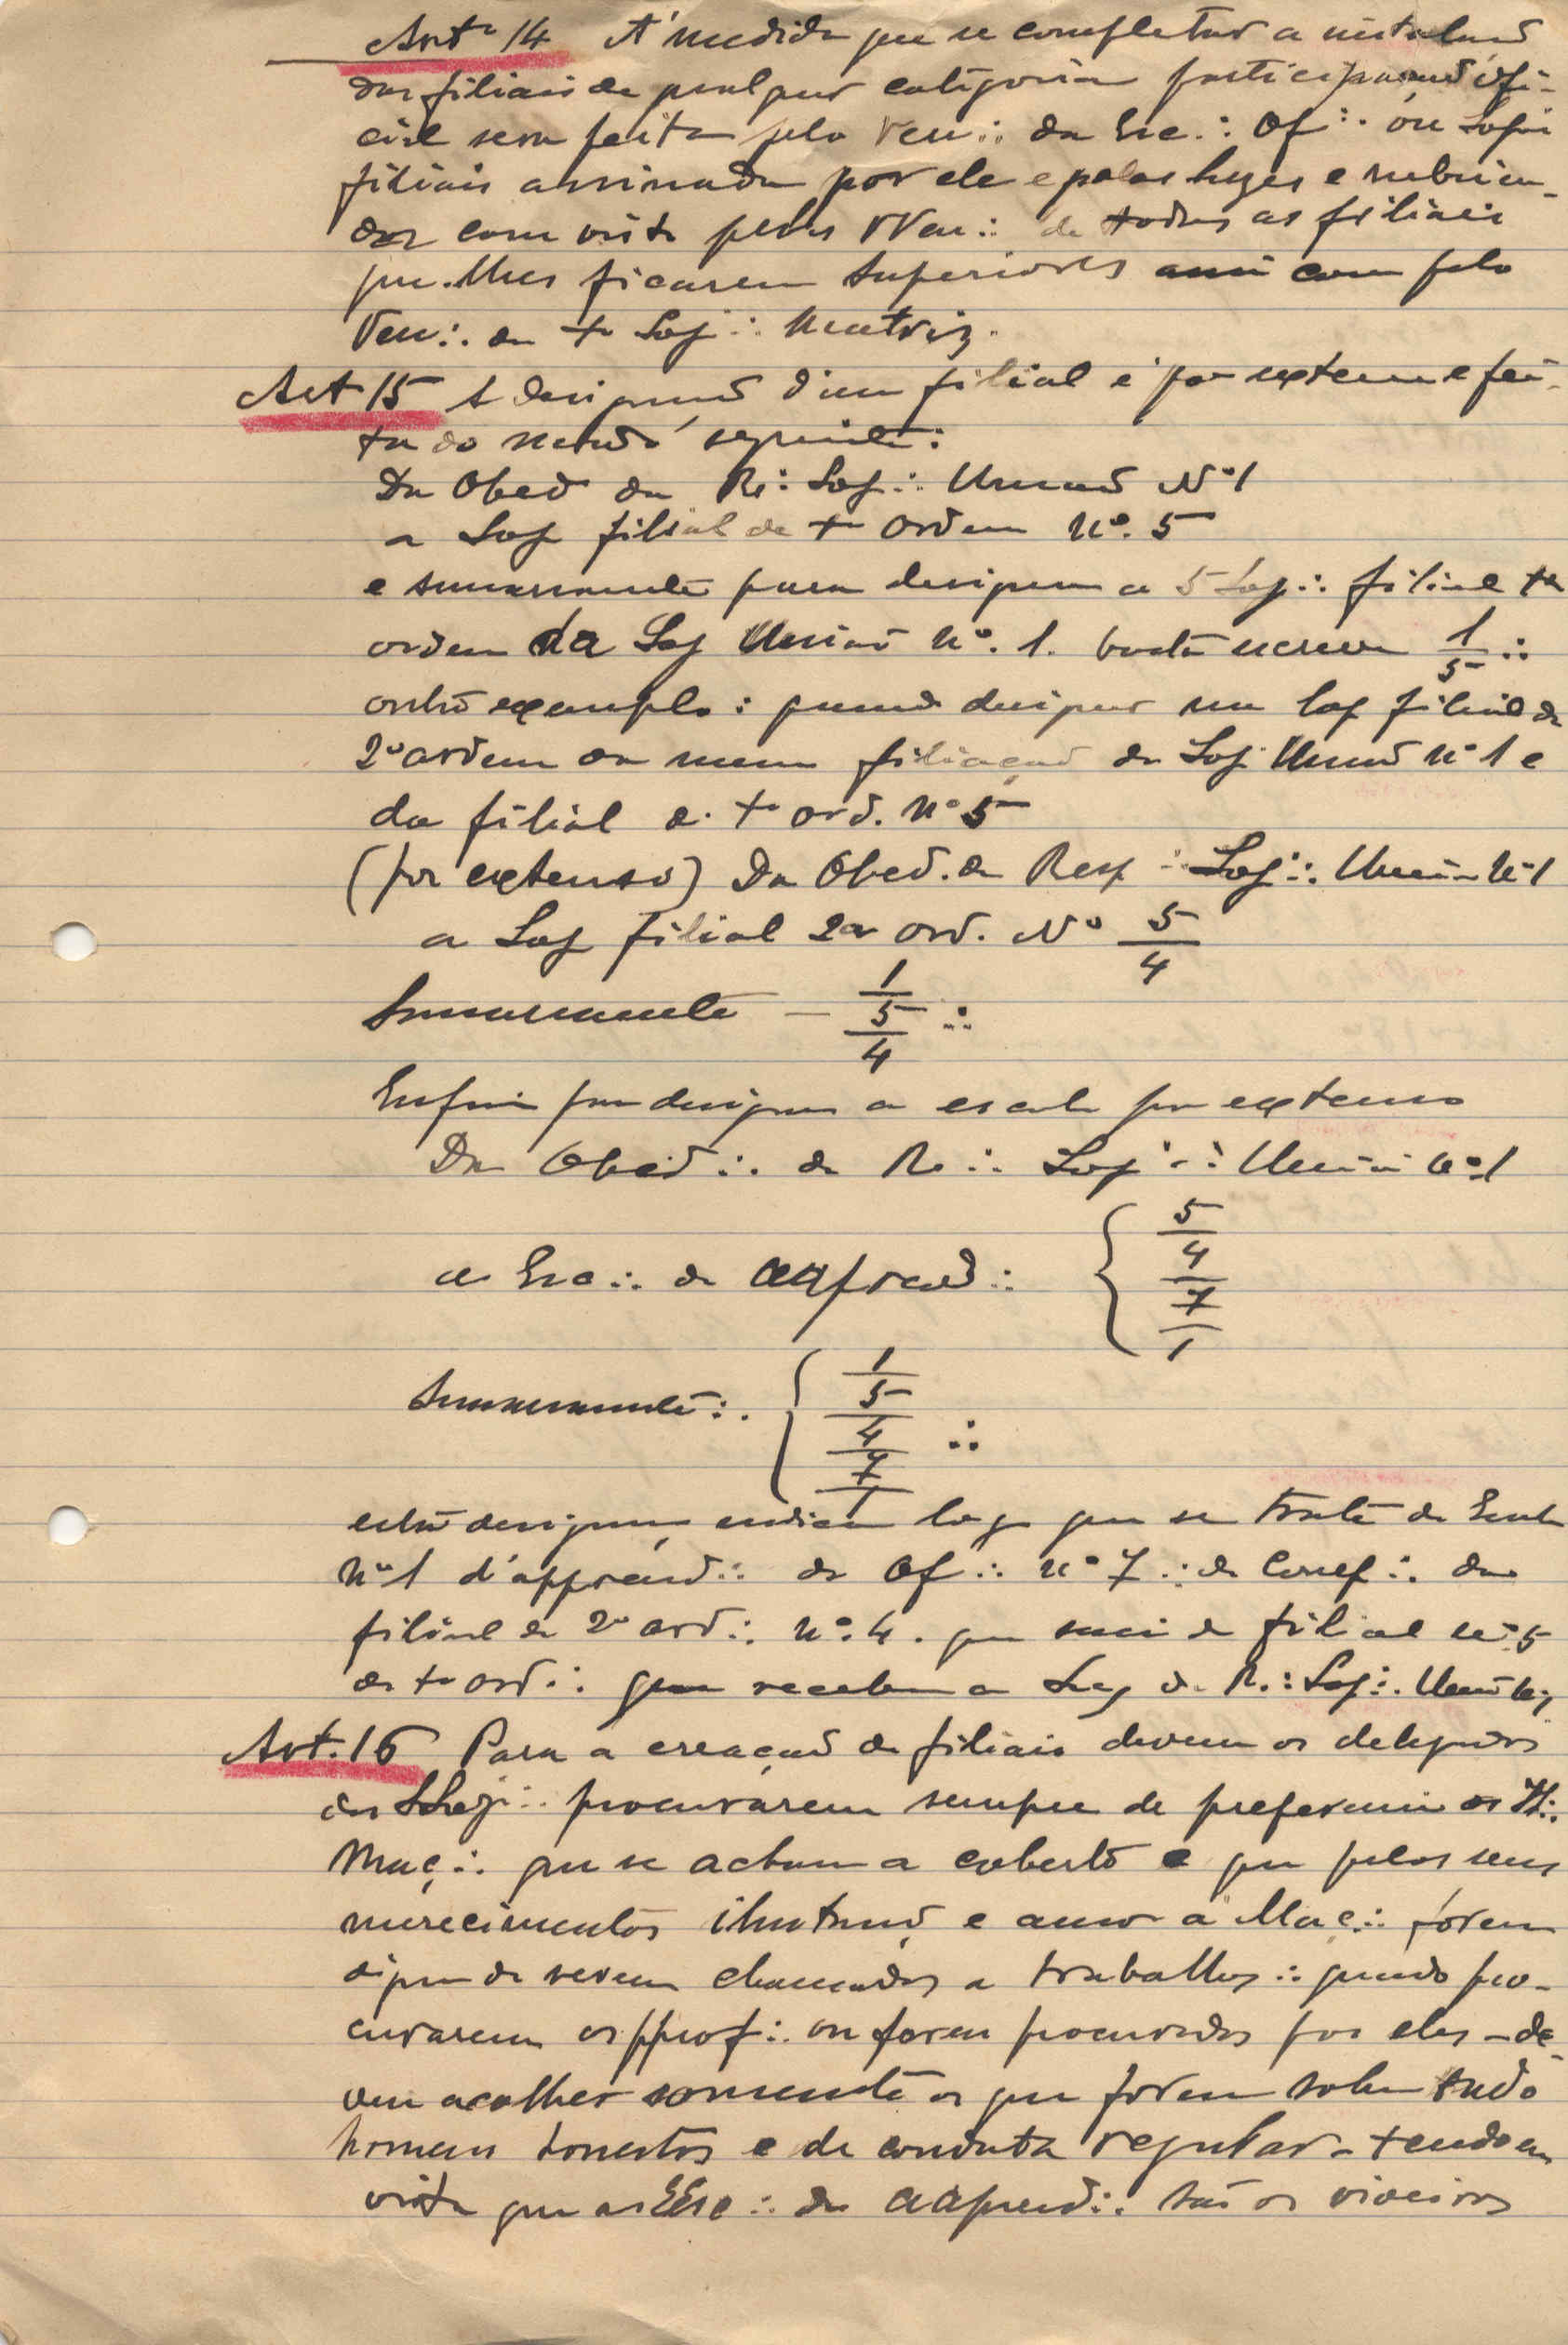 Artº 14 A' medida que se completar a instalação
das filiais de qualquer categoria participação ofi-
cial sera feita pelo Ven∴ da Esc∴ Of∴ ou Lojas
filiais assinada por ele e pelas luzes e rubrica-
das com visto pelos VVen∴ de todas as filiais
que lhes ficarem superiores assi com pelo
Ven∴ da Loj∴ Matriz.
Art 15 A designação d'um filial é por extenso e fei-
ta do modo seguinte:
Da Obed da R∴ Loj∴ União Nº 1
a Loj filial de 1ª ordem Nº. 5
e summariamente para designar a 5 Loj∴ filial 1ª
ordem da Loj União nº. 1. basta escrever 1/5 ∴
outro exemplo: quando designar um loj filial de
2ª ordem da mesma filiação da Loj União nº 1 e
da filial de 1ª ord. nº 5
(por extenso) Da Obed. da Resp∴ Loj∴ União nº 1
a Loj filial 2ª ord. Nº 5/4
Summariamente – 1/5/4 ∴
Enfim para designar a escola por extenso
Da Obed∴ da R∴ Loj∴ União nº 1
a Esc∴ de aaprend∴ { 5/4/7/1
Summariamente∴ { 1/5/4/7/1 ∴
esta designação indica logo que se trata da Escola
nº 1 d'apprend∴ da Of∴ nº 7∴ de Comp∴ da
filial de 2ª ord∴ nº. 4. que saiu da filial nº 5
de 1ª ord∴ que recebeu a Luz da R∴ Loj∴ União nº 1
Art. 16 Para a creaçao de filiais devem os delegados
das LLoj∴ procurarem sempre de preferencia os II∴
Maç∴ que se acham a coberto e que pelos seus
merecimentos ilustração e amor á Maç∴ forem
dignos de serem chamados a trabalhos∴ quando pro-
curarem os pprof∴ ou forem procurados por eles – de-
vem acolher somente os que forem sobre tudo
homens honestos e de conduta regular – tendo em
vista que as EEsc∴ de aaprend∴ são os viveiros